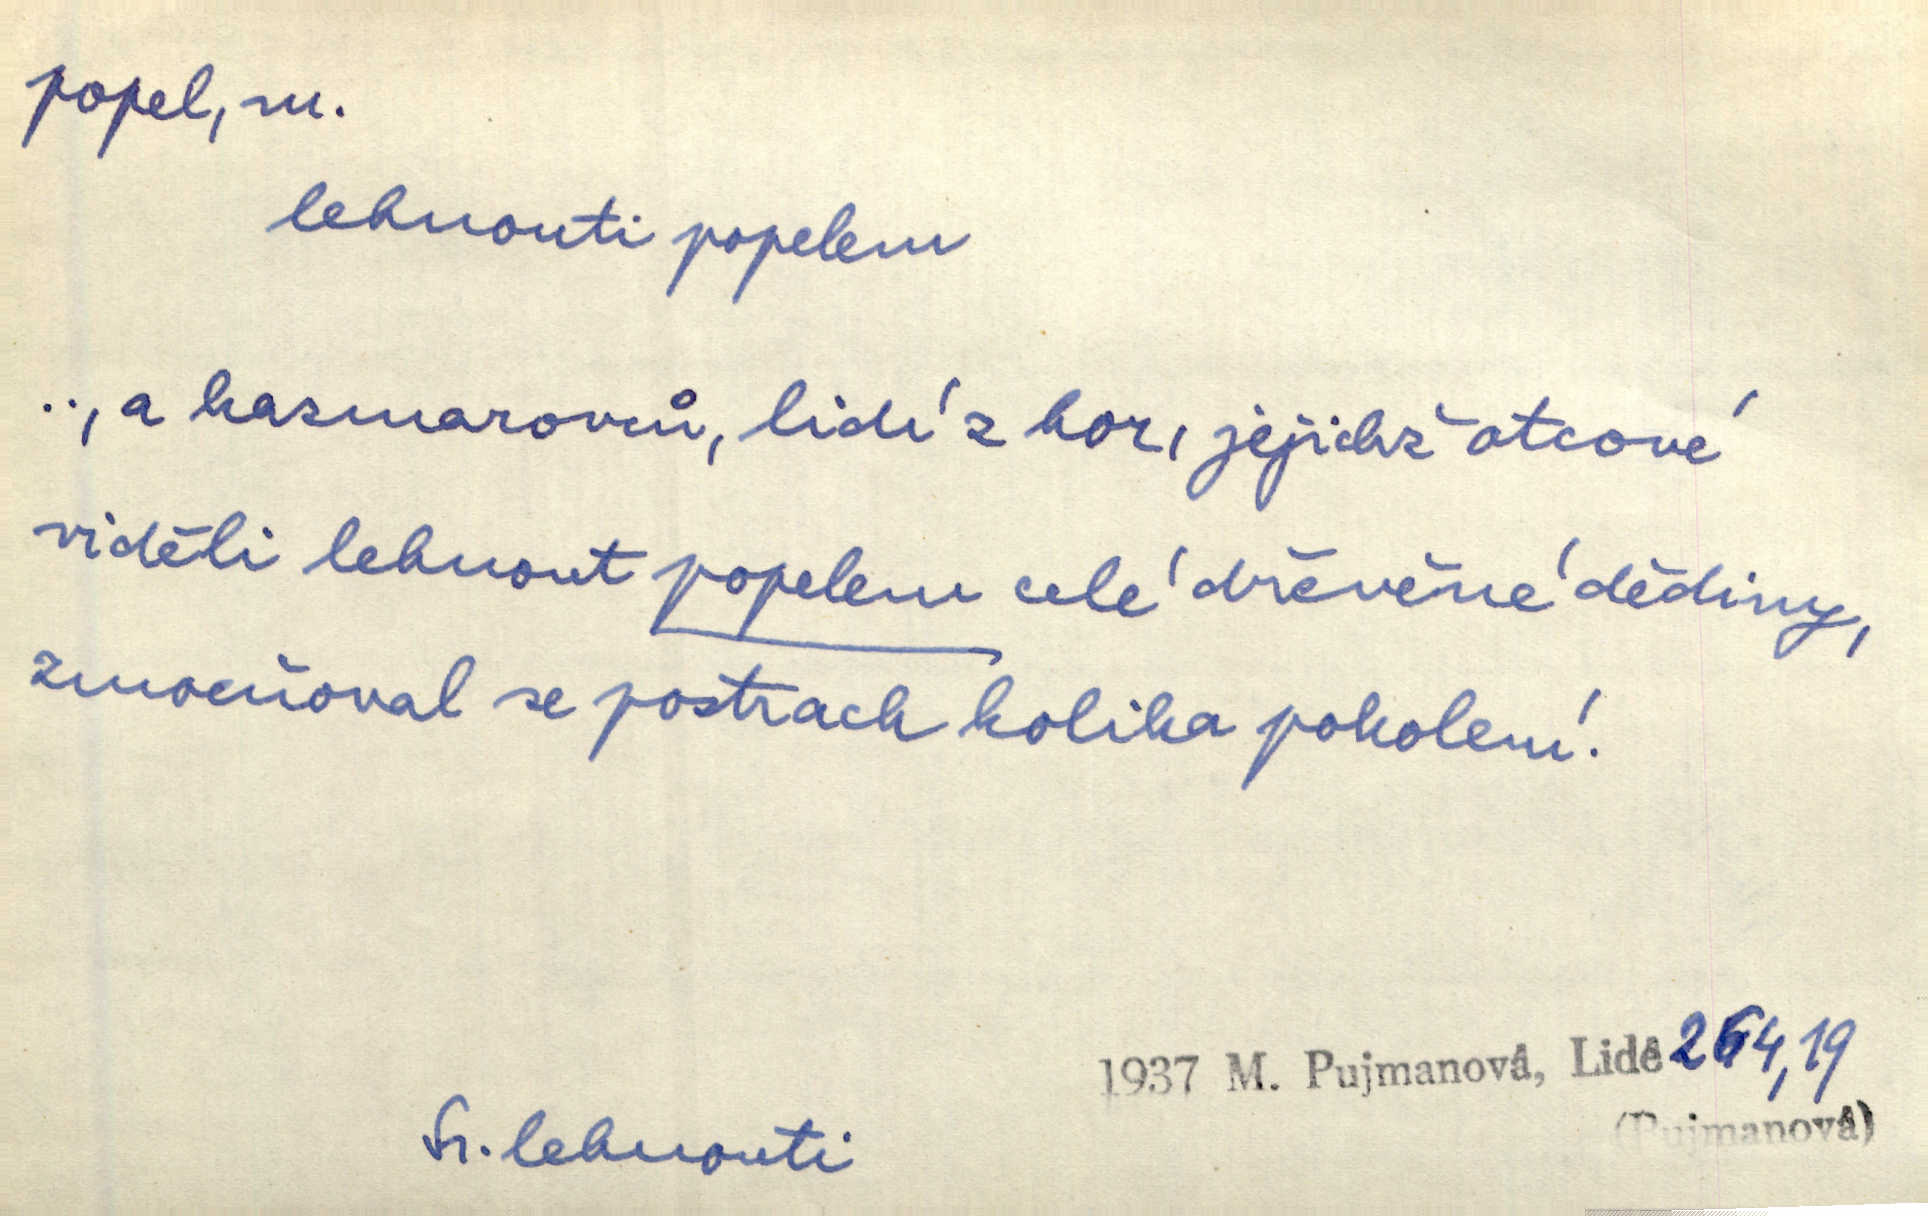 popel, m.
lehnouti popelem
.., a kazmarovců, lidí z hor, jejichž otcové
viděli lehnout popelem celé dřevěné dědiny,
zmocňoval se postrach kolika pokolení.
1937 M. Pujmanová, Lidé 264,19
(Pujmanová)
Sr. lehnouti